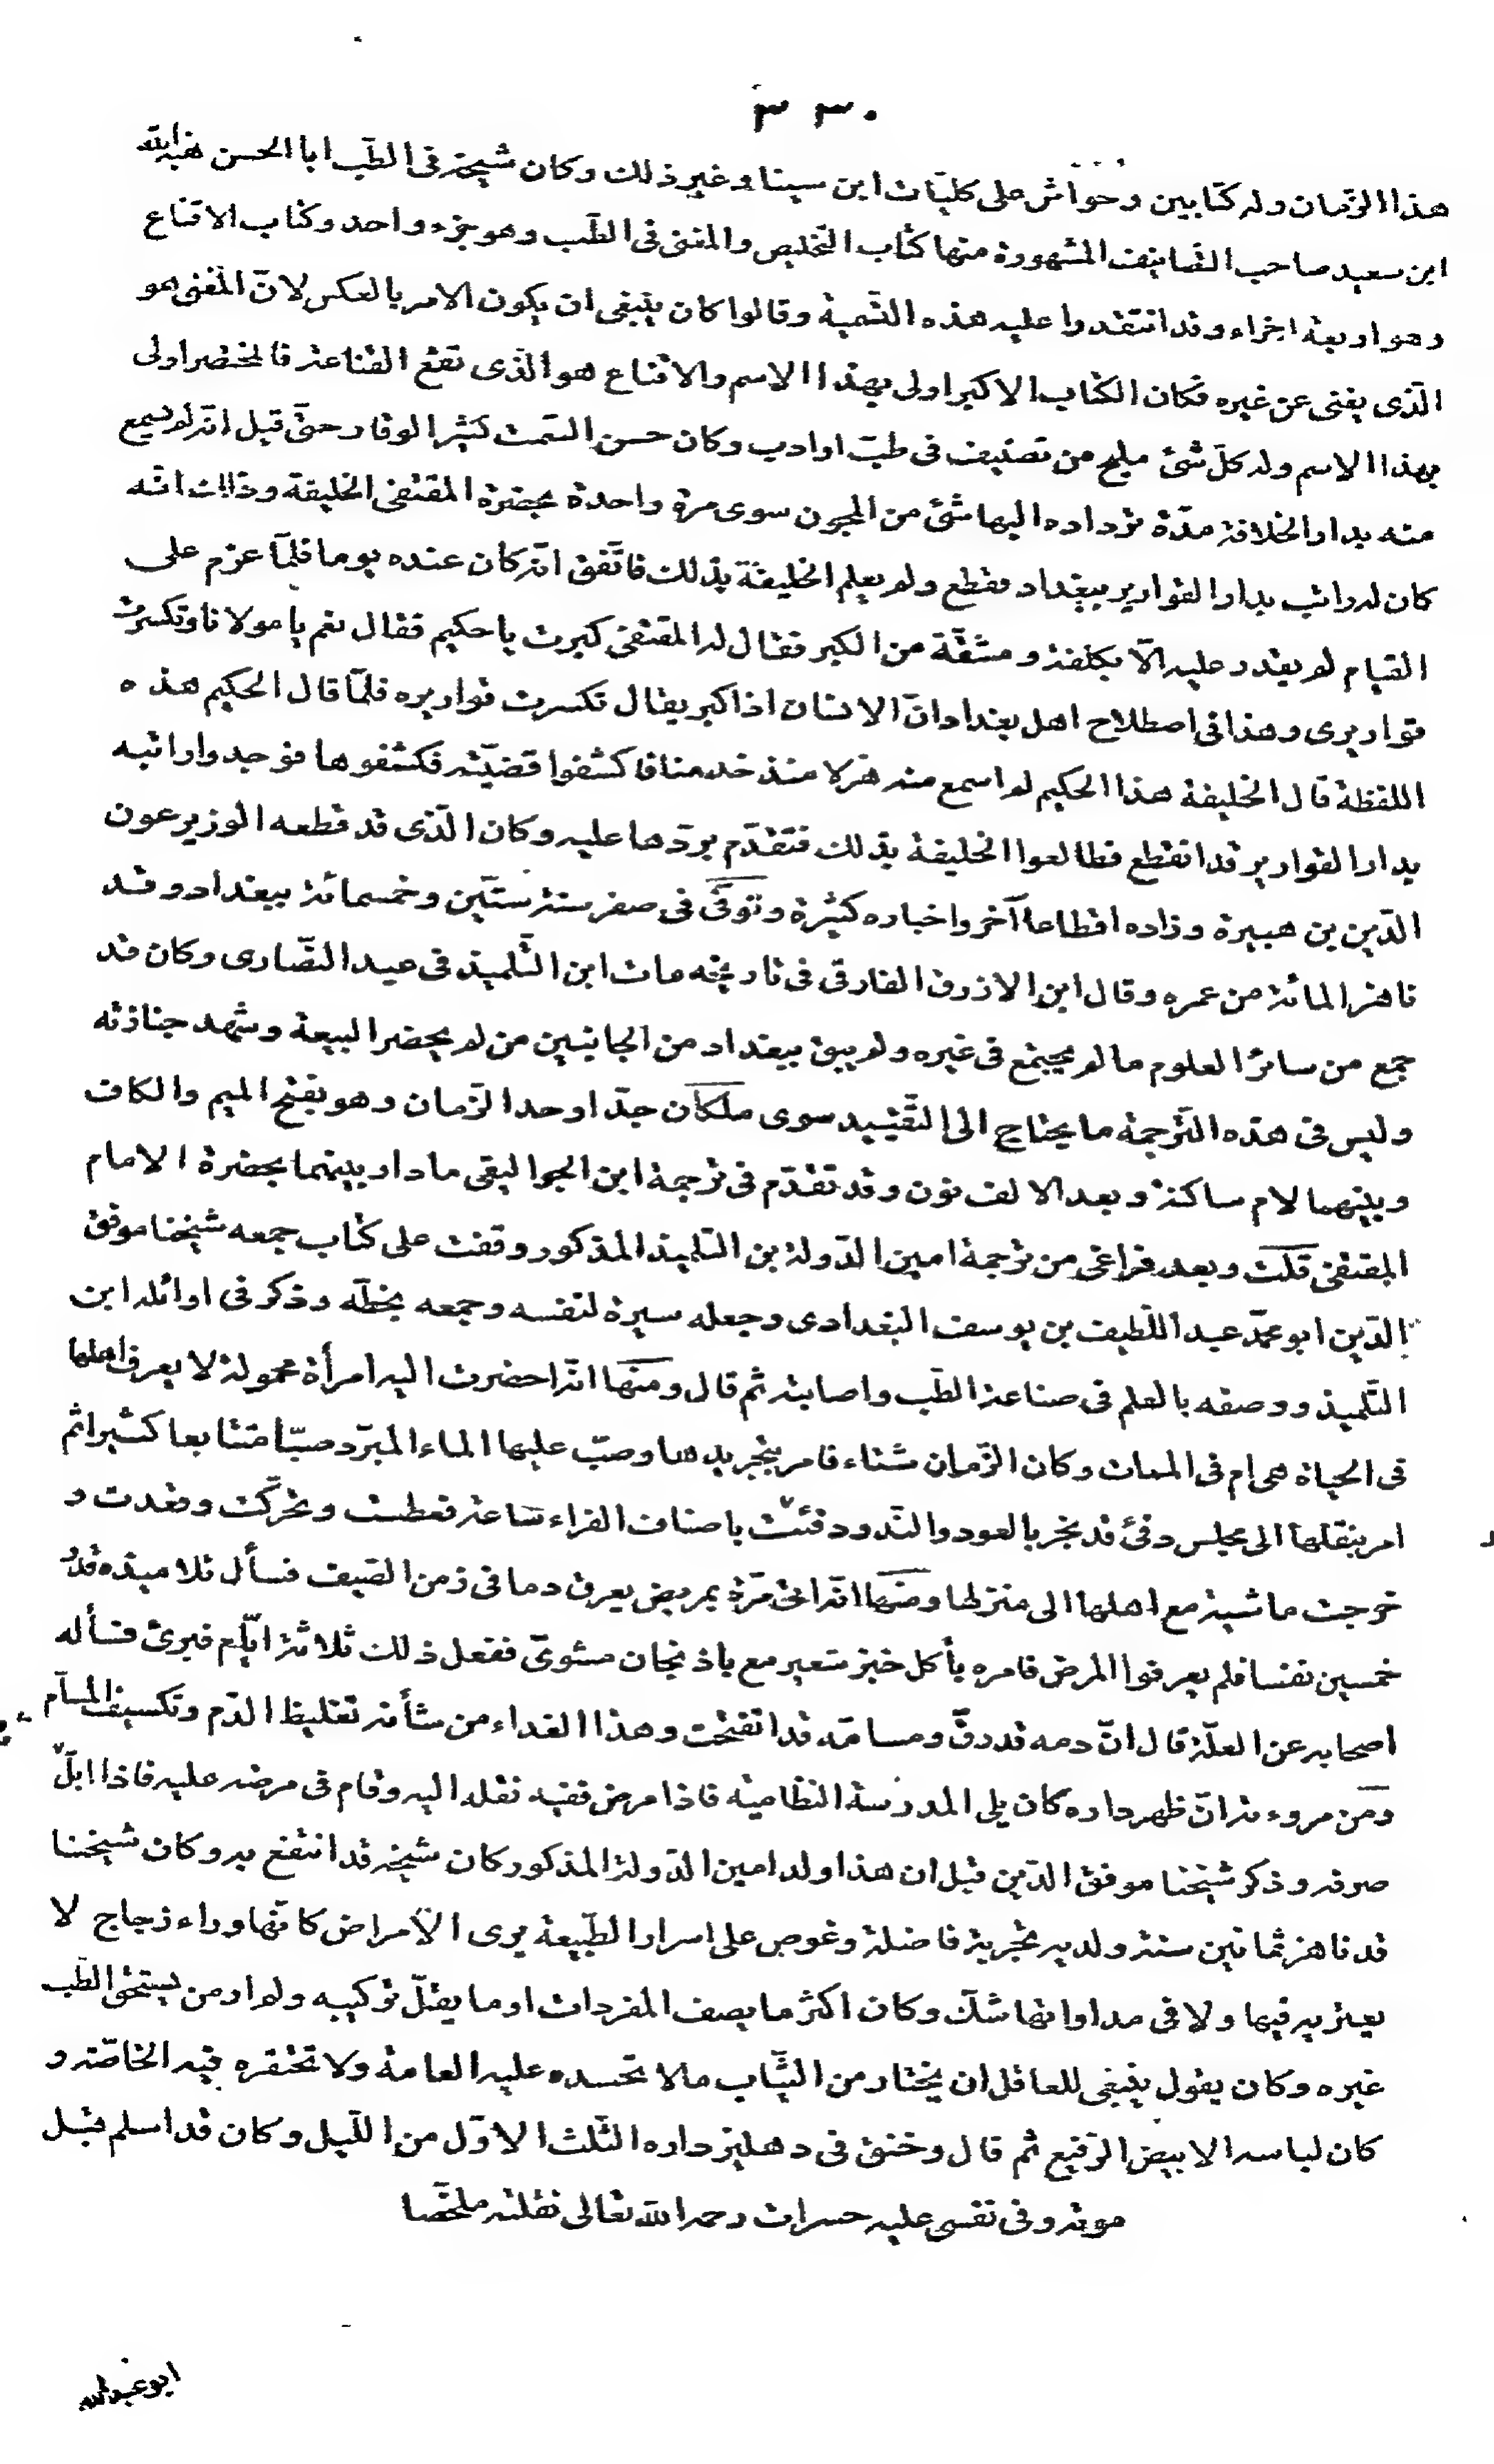 ٣٣٠
هذا الزمان وله كتابين وحواش على كليات ابن سينا وغير ذلك وكان شيخه فى الطب ابا الحسن هبة الله
ابن سعيد صاحب التصانيف المشهورة منها كتاب التخليص والمغنى فى الطب وهو جزء واحد وكتاب الاقناع
وهو اربعة اجزاء وقد انتقدوا عليه هذه التسمية وقالوا كان ينبغى ان يكون الامر بالعكس لان المغنى هو
الذى يغنى عن غيره فكان الكتاب الاكبر اولى بهذا الاسم والاقناع هو الذى تقع القناعة فالمختصر اولى
بهذا الاسم وله كل شئ مليح من تصنيف فى طب او ادب وكان حسن السمت كثير الوقار حتى قيل انه لم يسمع
منه بدار الخلافة مدة ترداده اليها شئ من المجون سوى مرة واحدة بحضرة المقتفى الخليفة وذلك انه
كان له راتب بدار القوارير ببغداد فقطع ولم يعلم الخليفة بذلك فاتفق انه كان عنده يوما فلما عزم على
القيام لم يقدر عليه الا بكلفة ومشقة من الكبر فقال له المقتفى كبرت يا حكيم فقال نعم يا مولانا وتكسرت
قواريرى وهذا فى اصطلاح اهل بغداد ان الانسان اذا كبر يقال تكسرت قواريره فلما قال الحكيم هذه
اللفظة قال الخليفة هذا الحكيم لم اسمع منه هزلا منذ خدمنا فاكشفوا قضيته فكشفوها فوجدوا راتبه
بدار القوارير قد انقطع فطالعوا الخليفة بذلك فتقدم بردها عليه وكان الذى قد قطعه الوزير عون
الدين بن هبيرة وزاده اقطاعا آخر واخباره كثيرة وتوفى فى صفر سنة ستين وخمسمائة ببغداد وقد
ناهز المائة من عمره وقال ابن الازرق الفارقى فى تاريخه مات ابن التلميذ فى عيد النصارى وكان قد
جمع من سائر العلوم ما لم يجتمع فى غيره ولم يبق ببغداد من الجانبين من لم يحضر البيعة وشهد جنازته
وليس فى هذه الترجمة ما يحتاج الى التقييد سوى ملكان جد اوحد الزمان وهو بفتح الميم والكاف
وبينهما لام ساكنة وبعد الالف نون وقد تقدم فى ترجمة ابن الجواليقى ما دار بينهما بحضرة الامام
المقتفى قلت وبعد فراغى من ترجمة امين الدولة بن التلميذ المذكور وقفت على كتاب جمعه شيخنا موفق
الدين ابو محمد عبد اللطيف بن يوسف البغدادى وجعله سيرة لنفسه وجمعه بخطه وذكر فى اوائله ابن
التلميذ ووصفه بالعلم فى صناعة الطب واصابته ثم قال ومنها انه احضرت اليه امرأة محمولة لا يعرف اهلها
فى الحياة هى ام فى الممات وكان الزمان شتاء فامر بتجريدها وصب عليها الماء المبرد صبا متتابعا كثيرا ثم
امر بنقلها الى مجلس دفئ قد بخر بالعود والند ودفئت باصناف الفراء ساعة فعطست وتحركت وقعدت و
خرجت ماشية مع اهلها الى منزلها ومنها انه اتى مرة بمريض يعرق دما فى زمن الصيف فسأل تلاميذه قدر
خمسين نفسا فلم يعرفوا المرض فامره بأكل خبز شعير مع باذنجان مشوى ففعل ذلك ثلاثة ايام فبرئ فسأله
اصحابه عن العلة قال ان دمه قد رق ومسامه قد انفتحت وهذا الغداء من شأنه تغليظ الدم وتكسيف المسام
ومن مروءته ان ظهر داره كان يلى المدرسة النظامية فاذا مرض فقيه نقله اليه وقام فى مرضه عليه فاذا ابل
صرفه وذكر شيخنا موفق الدين قبل ان هذا ولد امين الدولة المذكور كان شيخه قد انتفع به وكان شيخنا
قد ناهز ثمانين سنة ولديه تجربة فاضلة وغوص على اسرار الطبيعة يرى الأمراض كانها وراء زجاج لا
يعتريه فيها ولا فى مداواتها شك وكان اكثر ما يصف المفردات او ما يقل تركيبه ولم ار من يستحق الطب
غيره وكان يقول ينبغى للعاقل ان يختار من الثياب ما لا تحسده عليه العامة ولا تحتقره فيه الخاصة و
كان لباسه الابيض الرفيع ثم قال وخنق فى دهليز داره الثلث الاول من الليل وكان قد اسلم قبل
موته وفى نفسى عليه حسرات رحمه الله تعالى نقلته ملخصا
ابو عبد الله